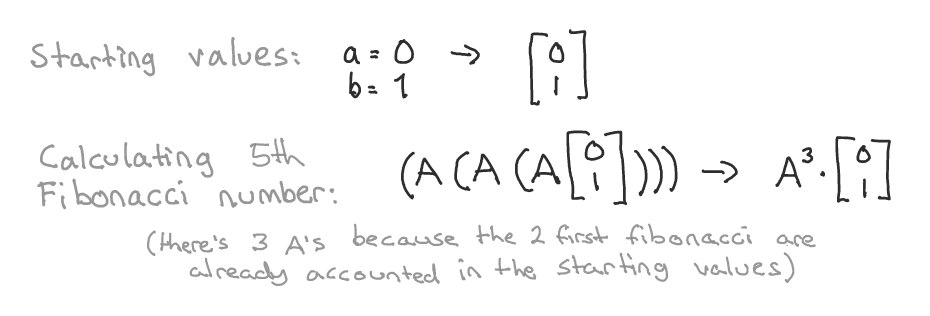 Starting values: a = 0 → [0
b = 1 1]
Calculating 5th
Fibonacci number: (A (A (A [0 1]))) → A³ · [0 1]
(there's 3 A's because the 2 first fibonacci are
already accounted in the starting values)